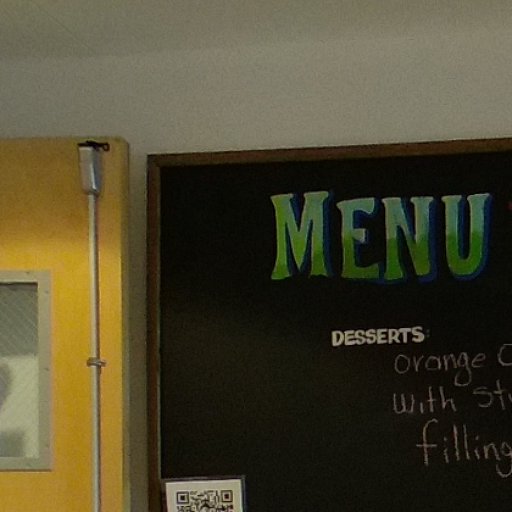 MENU
DESSERTS:
orange
with
filling